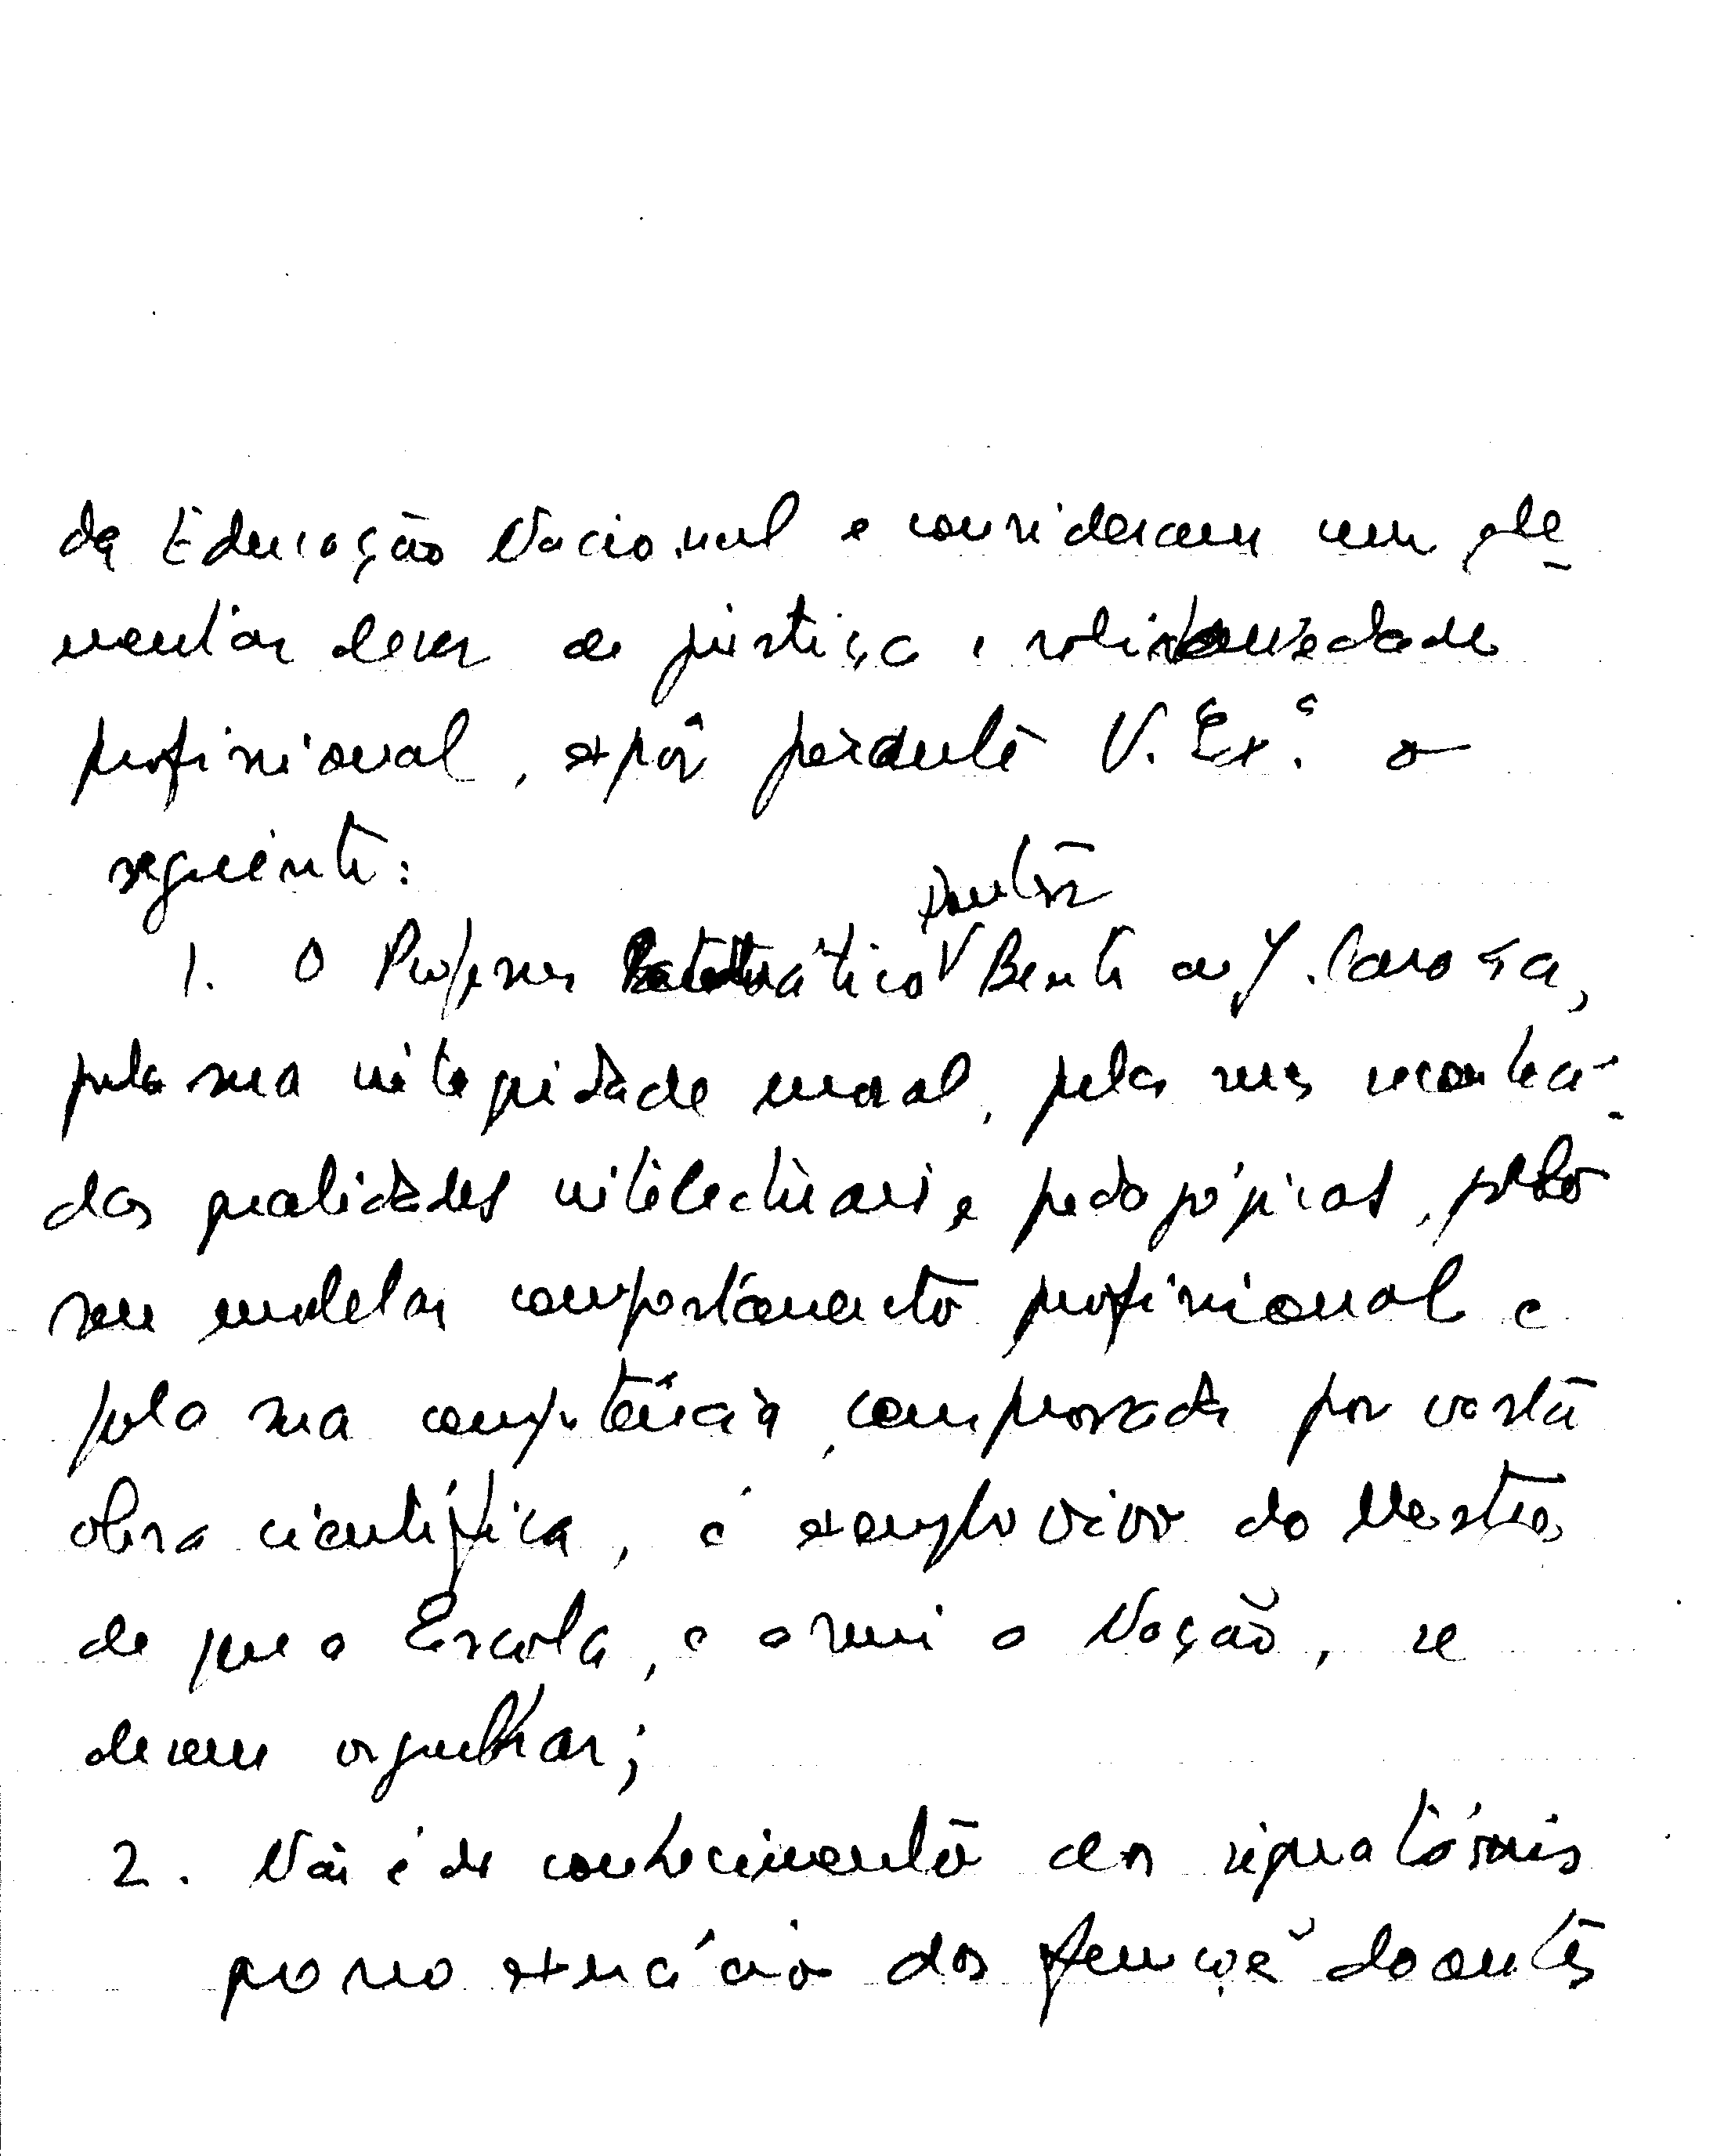 da Educação Nacional e consideram um ele-
mentar dever de justiça e solidariedade
profissional, expôr perante V. Ex.ª o
seguinte:
Doutor
1. O Professor Catedrático Bento de J. Caraça,
pela sua integridade moral, pelas suas reconheci-
das qualidades intelectuais e pedagógicas, pelo
seu modelar comportamento profissional e
pela sua competência, comprovada por vasta
obra científica, é exemplo vivo do Mestre
de que a Escola, e assim a Nação, se
devem orgulhar;
2. Não é do conhecimento dos signatários
que no exercício das funções docentes